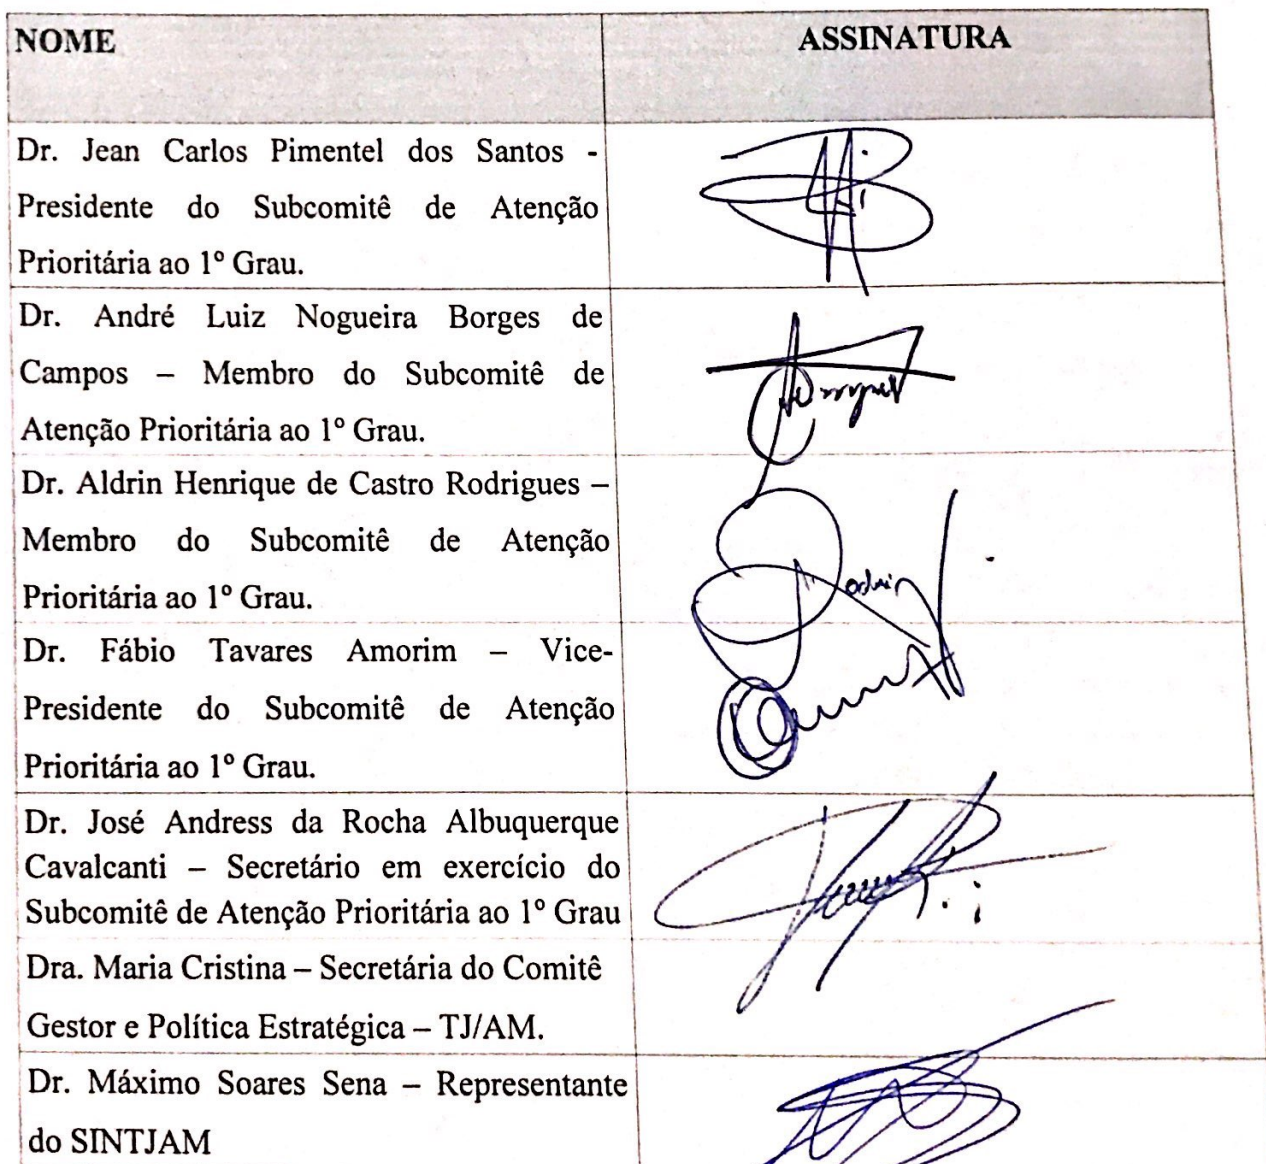 NOME
ASSINATURA
Dr. Jean Carlos Pimentel dos Santos -
Presidente do Subcomitê de Atenção
Prioritária ao 1º Grau.
Dr. André Luiz Nogueira Borges de
Campos – Membro do Subcomitê de
Atenção Prioritária ao 1º Grau.
Dr. Aldrin Henrique de Castro Rodrigues –
Membro do Subcomitê de Atenção
Prioritária ao 1º Grau.
Dr. Fábio Tavares Amorim – Vice-
Presidente do Subcomitê de Atenção
Prioritária ao 1º Grau.
Dr. José Andress da Rocha Albuquerque
Cavalcanti – Secretário em exercício do
Subcomitê de Atenção Prioritária ao 1º Grau
Dra. Maria Cristina – Secretária do Comitê
Gestor e Política Estratégica – TJ/AM.
Dr. Máximo Soares Sena – Representante
do SINTJAM